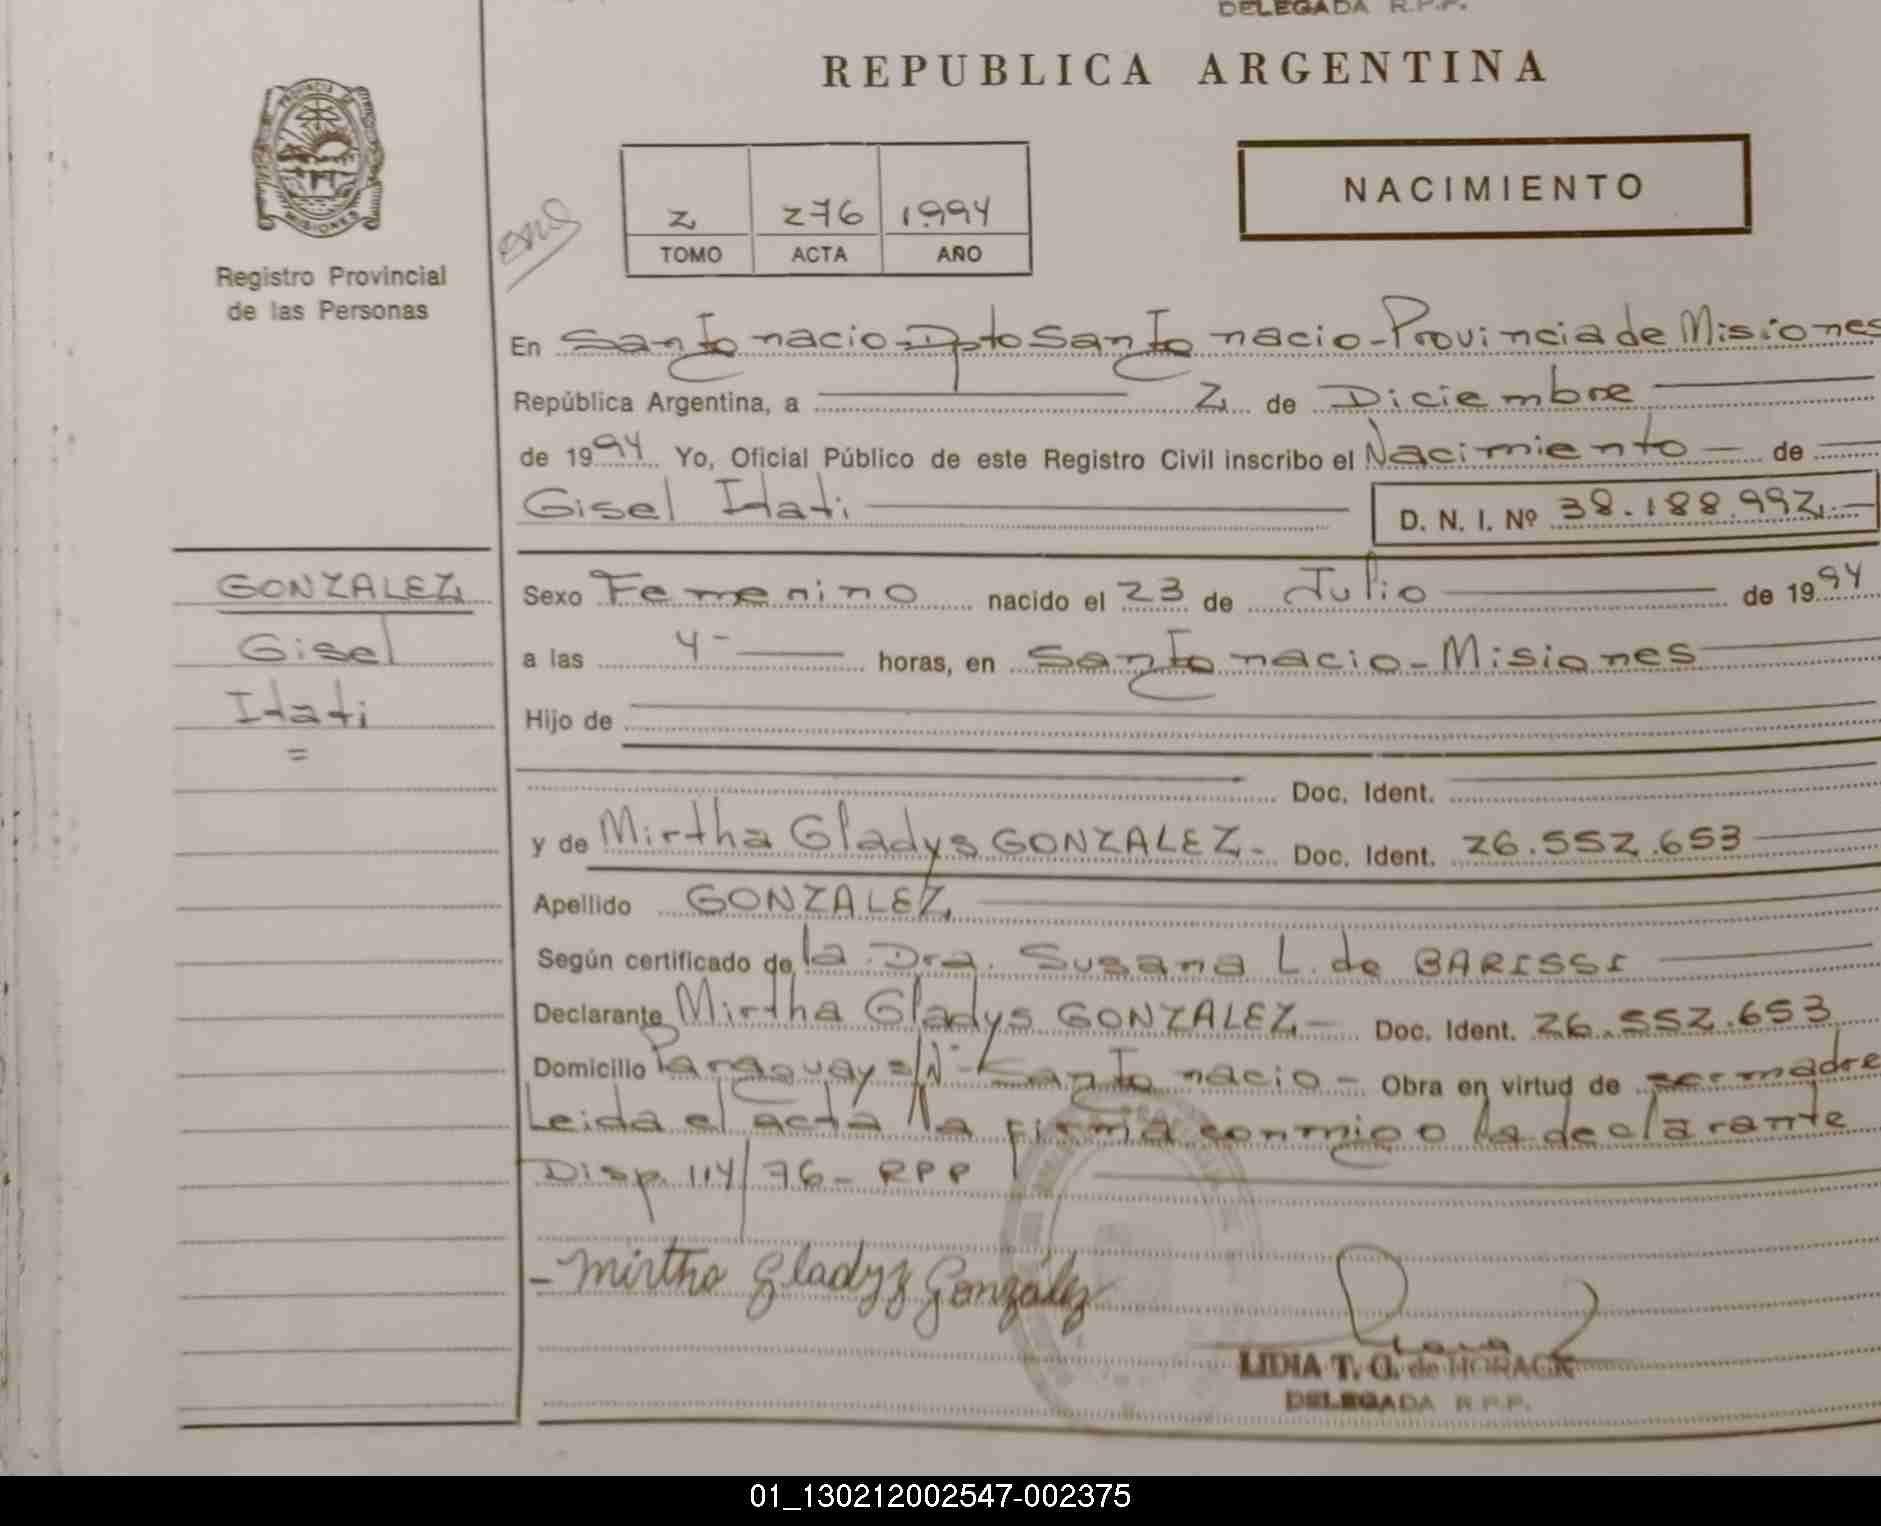 DELEGADA R.P.P.
REPUBLICA ARGENTINA
PROVINCIA DE MISIONES
Registro Provincial
de las Personas
2 276 1994
TOMO ACTA AÑO
NACIMIENTO
En San Ignacio-Dpto San Ignacio-Provincia de Misiones
República Argentina, a 2 de Diciembre
de 1994 Yo, Oficial Público de este Registro Civil inscribo el Nacimiento - de
Gisel Itati
D. N. I. Nº 38.188.992.-
GONZALEZ
Gisel
Itati
=
Sexo Femenino nacido el 23 de Julio de 1994
a las 4- horas, en San Ignacio-Misiones
Hijo de
Doc. Ident.
y de Mirtha Gladys GONZALEZ- Doc. Ident. 26.552.653
Apellido GONZALEZ
Según certificado de la Dra. Susana L. de BARISSI
Declarante Mirtha Gladys GONZALEZ- Doc. Ident. 26.552.653
Domicilio Paraguay s/Nº-San Ignacio- Obra en virtud de ser madre
Leida el acta la firma conmigo la declarante
Disp. 114/76- RPP
-Mirtha Gladyz González
LIDIA T. G. de HORACK
DELEGADA R.P.P.
01_130212002547-002375